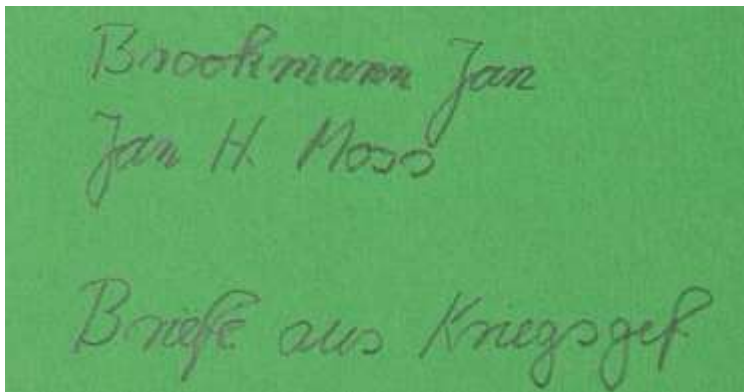 Brookmann Jan
Jan H. Moss
Briefe aus Kriegsgef.